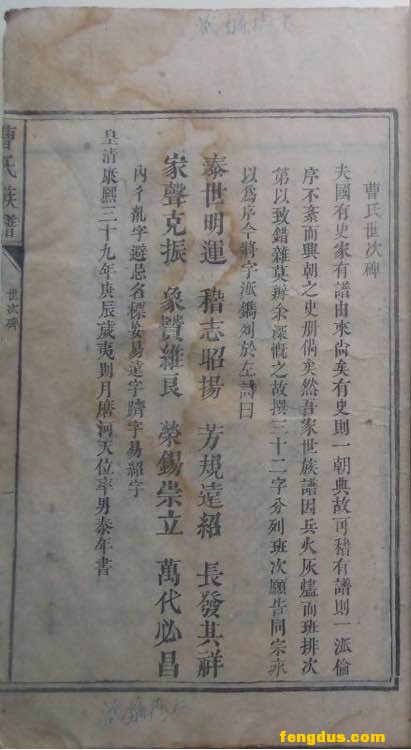 曹氏世次碑
夫國有史家有譜由來尚矣有史則一朝典故可稽有譜則一派倫
序不紊而興朝之史册偹矣然吾家世族譜因兵火灰燼而班排次
第以致錯雜莫辨余深慨之故撰三十二字分列班次願告同宗永
以爲序今將字派鐫列於左詩曰
泰世明運 稽志昭揚 芳規達紹 長發其祥
家聲克振 象賢維良 榮錫崇立 萬代必昌
内千龍字避忌名標妄易達字躋字易紹字
皇清康熙三十九年庚辰歲夷則月磨河天位率男泰年書
曹氏族譜
世次碑
fengdus.com